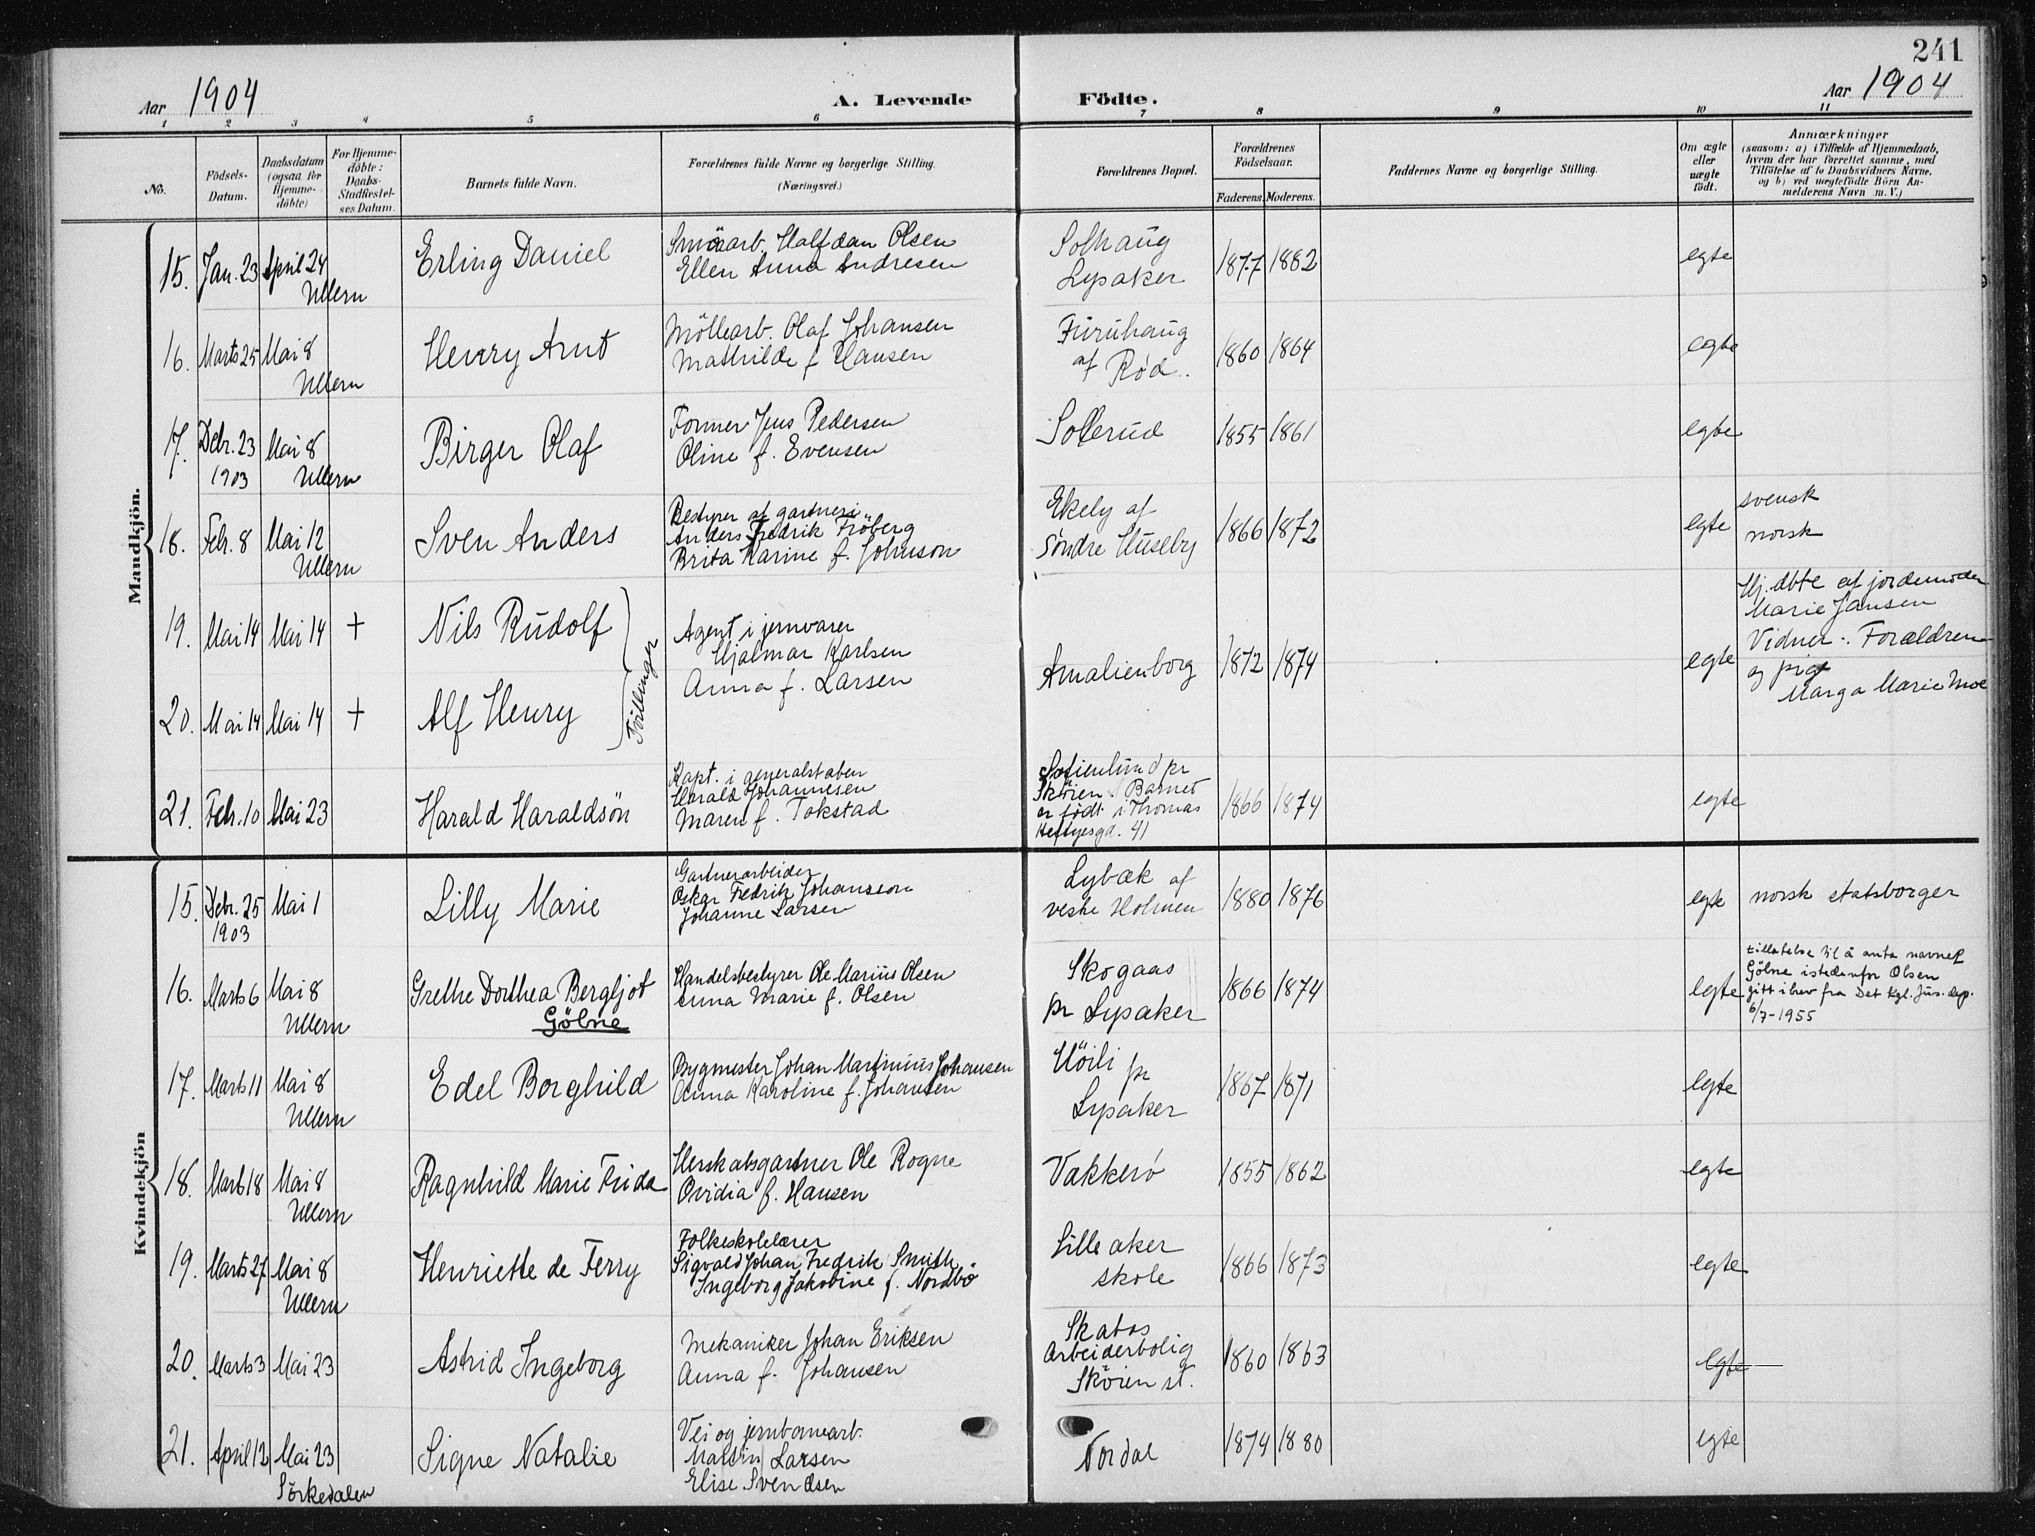 241
Aar 1904
A. Levende
Födte.
Aar 1904
1 2 3 4 5 6 7 8 9 10 11
No.
Födsels-Datum.
Daabsdatum (ogsaa for Hjemme-döbte)
For Hjemme-döbte: Daabs-Stadfæstel-ses Datum.
Barnets fulde Navn.
Forældrenes fulde Navne og borgerlige Stilling. (Næringsvei.)
Forældrenes Bopæl.
Forældrenes Födselsaar.
Faderens. Moderens.
Faddernes Navne og borgerlige Stilling.
Om ægte eller uægte födt.
Anmærkninger
(saasom: a) i Tilfælde af Hjemmedaab, hvem der har forrettet samme, med Tilföielse af to Daabsvidners Navne, og b) ved uægtefödte Börn An-melderens Navn m. V.)
Mandkjön.
15. Jan. 23 April 24 Ullern Erling Daniel Småarb. Halfdan Olsen
Ellen Anna Andresen
Solhaug
Lysaker
1877 1882 egte
16. Marts 25 Mai 8 Ullern Henry Arnt Möllearb. Olaf Johansen
Mathilde f. Hansen
Furuhaug
af Rød.
1860 1864 egte
17. Debr. 23 1903 Mai 8 Ullern Birger Olaf Former Jens Pedersen
Oline f. Evensen
Sollerud 1855 1861 egte
18. Febr. 8 Mai 12 Ullern Sven Anders Bestyrer af gartneri
Anders Fredrik Fröberg
Brita Karine f. Johnson
Ekely af
Søndre Huseby
1866 1872 egte svensk
norsk
19. Mai 14 Mai 14 + Nils Rudolf
20. Mai 14 Mai 14 + Alf Henry
Tvillinger
Agent i jernvarer
Hjalmar Karlsen
Anna f. Larsen
Amalienborg 1872 1874 egte
Hj. dbte af jordemoder
Marie Jansen
Vidner: Forældrene
og pige
Marga Marie Moe
21. Febr. 10 Mai 23 Harald Haraldsön Kapt. i generalstaben
Harald Johannesen
Maren f. Tokstad
Sofienlund pr
Sköien. Barnet
er født i Thomas
Heftyesgd. 41
1866 1874 egte
Kvindekjön
15. Debr. 25 1903 Mai 1 Lilly Marie Gartnerarbeider
Oskar Fredrik Johansson
Johanne Larsen
Lybæk af
vestre Holmen
1880 1876 egte norsk statsborger
16. Marts 6 Mai 8 Ullern Grethe Dorthea Bergljot
Gölne
Handelsbestyrer Ole Marius Olsen
Anna Marie f. Olsen
Skogaas
pr Lysaker
1866 1874 egte
tillatelse til å anta navnet
Gölne istedenfor Olsen
gitt i brev fra Det Kgl. Jus. dep.
6/7-1955
17. Marts 11 Mai 8 Ullern Edel Borghild Bygmester Johan Martinius Johansen
Anna Karoline f. Johansen
Höili pr
Lysaker
1867 1871 egte
18. Marts 18 Mai 8 Ullern Ragnhild Marie Frida Herskabsgartner Ole Rogne
Ovidia f. Hansen
Vækkerö 1855 1862 egte
19. Marts 27 Mai 8 Ullern Henriette de Ferry Folkeskolelærer
Sigvald Johan Fredrik Smith
Ingeborg Jakobine f. Nordbö
Lilleaker
skole
1866 1873 egte
20. Marts 3 Mai 23 Astrid Ingeborg Mekaniker Johan Eriksen
Anna f. Johansen
Skabos
Arbeiderbolig
Sköien st.
1860 1863 egte
21. April 12 Mai 23 Sörkedalen Signe Natalie Vei og jernbanearb.
Martin Larsen
Elise Svendsen
Nordal 1874 1880 egte